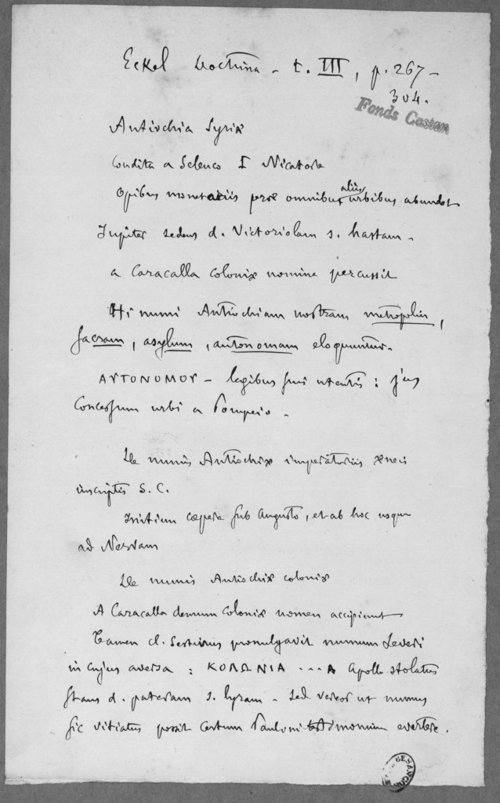 Eckel Doctrina - t. III, p. 267-
304.
Fonds Castan
Antiochia Syriæ
Condita a Seleuco I Nicatore
Opibus monetariis præ omnibus aliis urbibus abundat
Jupiter sedens d. Victoriolam s. hastam -
a Caracalla coloniæ nomine percussit
Hi numi Antiochiam nostram metropolin,
sacram, asylum, autonomam eloquuntur.
ΑΥΤΟΝΟΜΟΥ - legibus suis utentis : jus
concessum urbi a Pompeio -
De numis Antiochiæ imperatoriis æneis
inscriptis S. C.
Initium cæpere sub Augusto, et ab hoc usque
ad Nervam
De numis Antiochiæ coloniæ
A Caracalla demum coloniæ nomen accipiunt
Tamen cl. Sestinius promulgavit numum Severi
in cujus aversa : ΚΟΛΩΝΙΑ ... Α Apollo stolatus
stans d. pateram s. lyram - Sed vereor ut numus
sic vitiatus possit certum Pauli testimonium evertere.